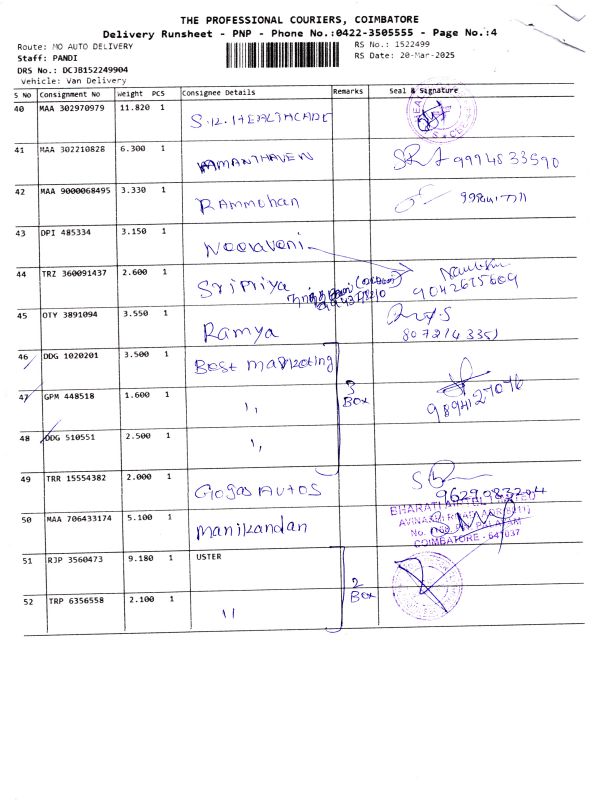 THE PROFESSIONAL COURIERS, COIMBATORE
Delivery Runsheet - PNP - Phone No.:0422-3505555 - Page No.:4
Route: MO AUTO DELIVERY RS No.: 1522499
Staff: PANDI RS Date: 20-Mar-2025
DRS No.: DCJB152249904
Vehicle: Van Delivery
S No Consignment No Weight PCS Consignee Details Remarks Seal & Signature
40 MAA 302970979 11.820 1
41 MAA 302210828 6.300 1 9994533590
42 MAA 9000068495 3.330 1 Rammohan
43 DPI 485334 3.150 1 Neelaveni
44 TRZ 360091437 2.600 1 Sripriya 9042615609
45 OTY 3891094 3.550 1 Ramya 8072143351
46 DDG 1020201 3.500 1 Best Marketing
47 GPM 448518 1.600 1 ,, 3 Box 9894127076
48 DDG 510551 2.500 1 ,,
49 TRR 15554382 2.000 1 Gogas Autos
50 MAA 706433174 5.100 1 Manikandan
COIMBATORE - 641037
51 RJP 3560473 9.180 1 USTER
52 TRP 6356558 2.100 1 ,, 2 Box